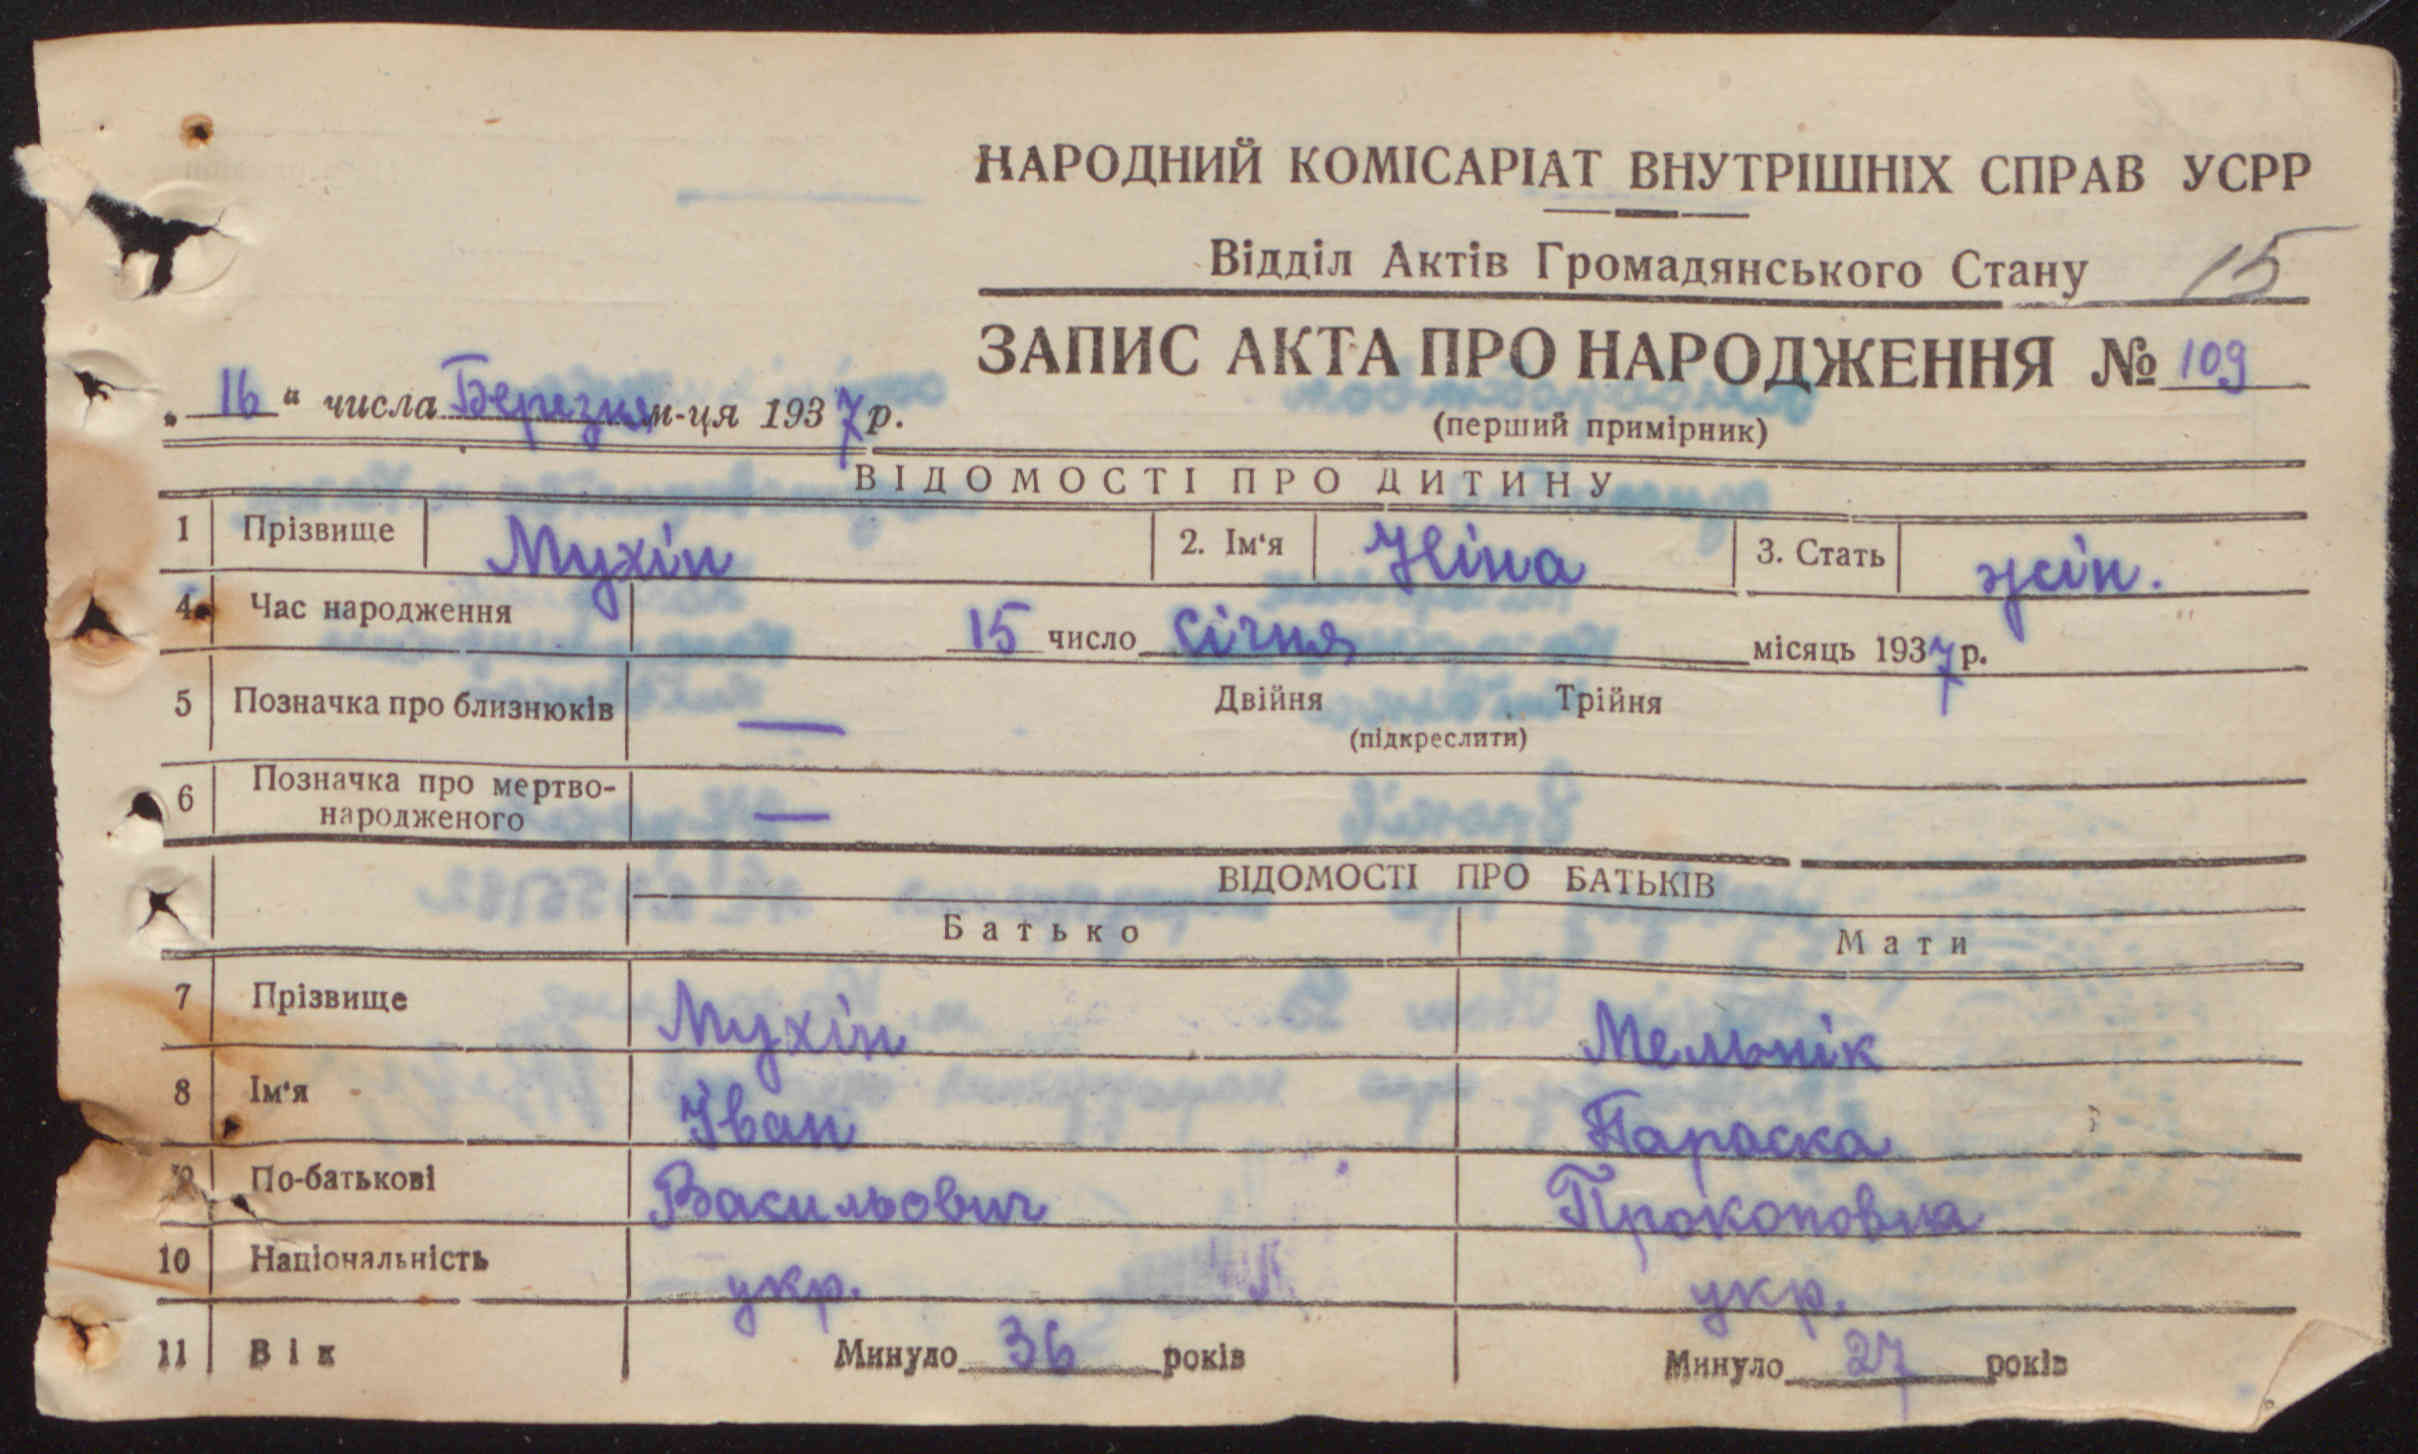 НАРОДНИЙ КОМІСАРІАТ ВНУТРІШНІХ СПРАВ УСРР
Відділ Актів Громадянського Стану 15
ЗАПИС АКТА ПРО НАРОДЖЕННЯ № 109
„ 16 “ числа Березня м-ця 1937 р.
(перший примірник)
ВІДОМОСТІ ПРО ДИТИНУ
1 Прізвище Мухін 2. Ім‘я Ніна 3. Стать жін.
4 Час народження 15 число січня місяць 1937 р.
5 Позначка про близнюків — Двійня Трійня
(підкреслити)
6 Позначка про мертво-
народженого —
ВІДОМОСТІ ПРО БАТЬКІВ
Батько Мати
7 Прізвище Мухін Мельнік
8 Ім‘я Іван Параска
9 По-батькові Васильович Прокоповна
10 Національність укр. укр.
11 Вік Минуло 36 років Минуло 27 років